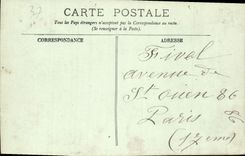 37
CARTE POSTALE
Tous les Pays étrangers n'acceptent pas la Correspondance au recto.
(Se renseigner à la Poste).
CORRESPONDANCE
ADRESSE
Fival
avenue de
St Ouen 86
Paris
86
(17eme)